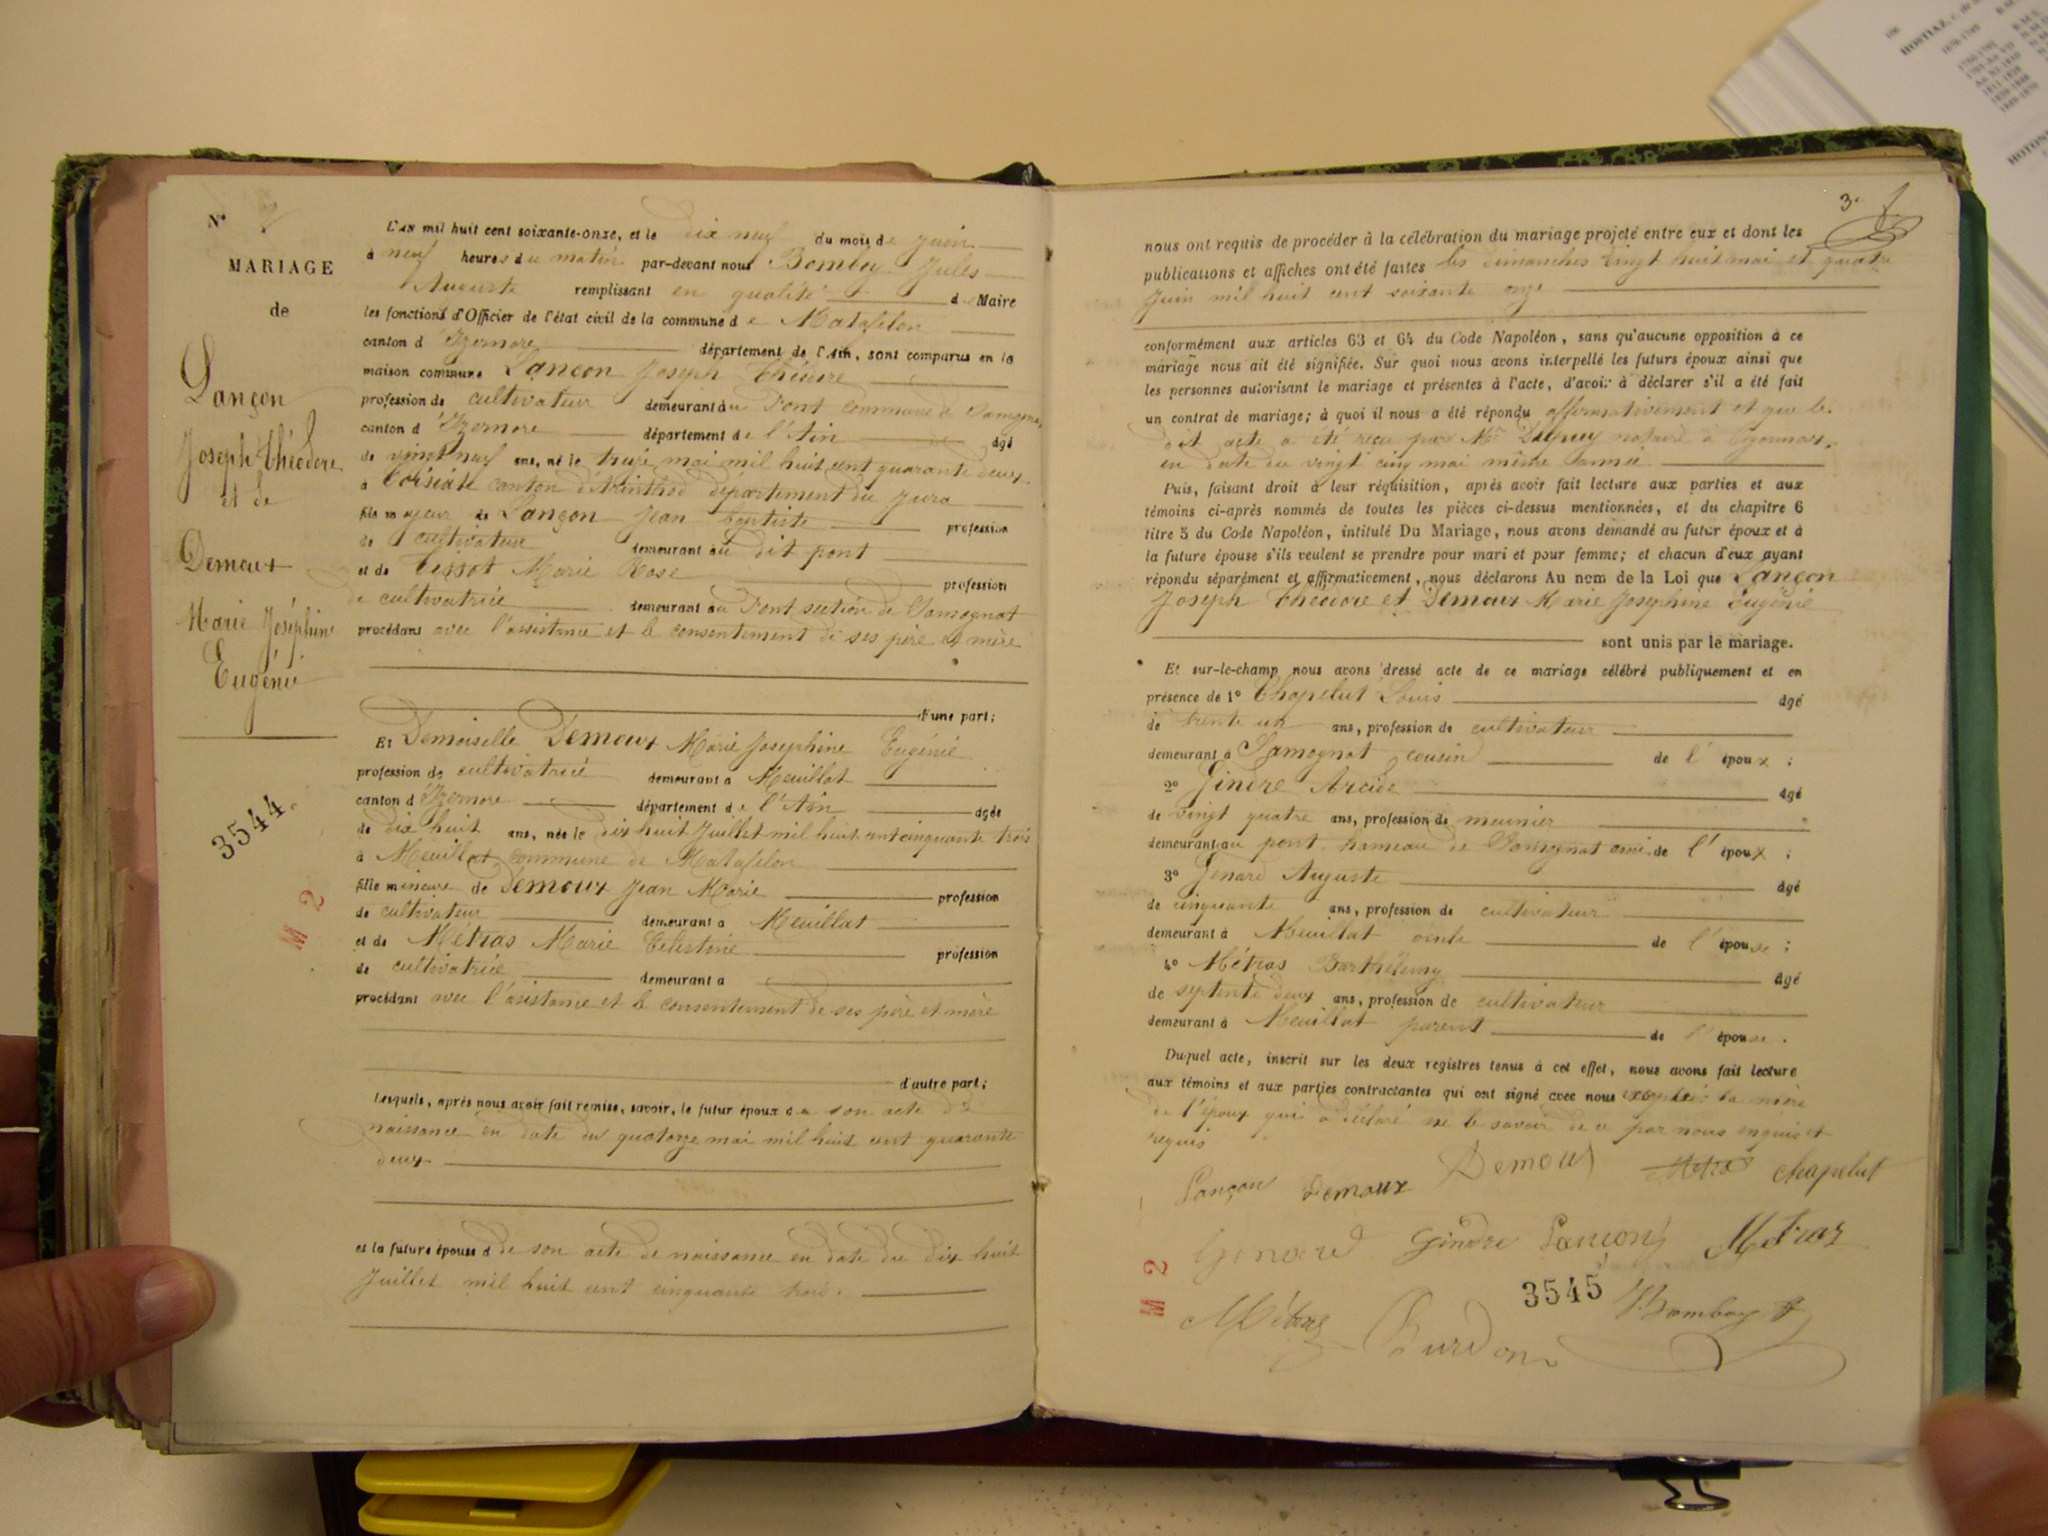 N° 2
MARIAGE
de
Lançon
Joseph Théodore
et de
Demoux
Marie Joséphine
Eugénie
3544
M 2
L'an mil huit cent soixante-onze, et le dix neuf du mois de juin
à neuf heures du matin par-devant nous Bomboy Jules
Auguste remplissant en qualité de Maire
les fonctions d'Officier de l'état civil de la commune de Matafelon
canton d'Izernore département de l'Ain, sont comparus en la
maison commune Lançon Joseph Théodore
profession de cultivateur demeurant au Pont commune de Samognat
canton d'Izernore département de l'Ain âgé
de vingt neuf ans, né le treize mai mil huit cent quarante deux
à Coisiat canton d'Arinthod département du Jura
fils majeur de Lançon Jean Baptiste profession
de cultivateur demeurant au dit pont
et de Tissot Marie Rose profession
de cultivatrice demeurant au Pont section de Samognat
procédant avec l'assistance et le consentement de ses père et mère
d'une part;
Et Demoiselle Demoux Marie Josephine Eugénie
profession de cultivatrice demeurant à Heuillat
canton d'Izernore département de l'Ain âgée
de dix huit ans, née le dix huit Juillet mil huit cent cinquante trois
à Heuillat commune de Matafelon
fille mineure de Demoux Jean Marie profession
de cultivateur demeurant à Heuillat
et de Métras Marie Celestine profession
de cultivatrice demeurant à
procédant avec l'assistance et le consentement de ses père et mère
d'autre part;
Lesquels, après nous avoir fait remise, savoir, le futur époux de son acte de
naissance en date du quatorze mai mil huit cent quarante
deux
et la future épouse d de son acte de naissance en date du dix huit
Juillet mil huit cent cinquante trois.
3.
nous ont requis de procéder à la célébration du mariage projeté entre eux et dont les
publications et affiches ont été faites les dimanches vingt huit mai et quatre
Juin mil huit cent soixante onze
conformément aux articles 63 et 64 du Code Napoléon, sans qu'aucune opposition à ce
mariage nous ait été signifiée. Sur quoi nous avons interpellé les futurs époux ainsi que
les personnes autorisant le mariage et présentes à l'acte, d'avoir à déclarer s'il a été fait
un contrat de mariage; à quoi il nous a été répondu affirmativement et que le
dit acte a été reçu par Me notaire à Oyonnax
en date du vingt cinq mai même année
Puis, faisant droit à leur réquisition, après avoir fait lecture aux parties et aux
témoins ci-après nommés de toutes les pièces ci-dessus mentionnées, et du chapitre 6
titre 5 du Code Napoléon, intitulé Du Mariage, nous avons demandé au futur époux et à
la future épouse s'ils veulent se prendre pour mari et pour femme; et chacun d'eux ayant
répondu séparément et affirmativement, nous déclarons Au nom de la Loi que Lançon
Joseph Théodore et Demoux Marie Josephine Eugénie
sont unis par le mariage.
Et sur-le-champ nous avons dressé acte de ce mariage célébré publiquement et en
présence de 1° Chapelut Louis âgé
de trente un ans, profession de cultivateur
demeurant à Samognat cousin de l'époux;
2° Gindre Arcide âgé
de vingt quatre ans, profession de meunier
demeurant au pont hameau de Samognat ami de l'époux;
3° Génard Auguste âgé
de cinquante ans, profession de cultivateur
demeurant à Heuillat oncle de l'épouse;
4° Métras Barthélemy âgé
de septente deux ans, profession de cultivateur
demeurant à Heuillat parent de l'épouse.
Duquel acte, inscrit sur les deux registres tenus à cet effet, nous avons fait lecture
aux témoins et aux parties contractantes qui ont signé avec nous excepté la mère
de l'époux qui a déclaré ne le savoir de ce par nous enquis et
requis
Lançon Demoux Demoux Métras chapelut
Génard Gindre Lançon Métras
M 2
3545
Métras Burdon Bomboy